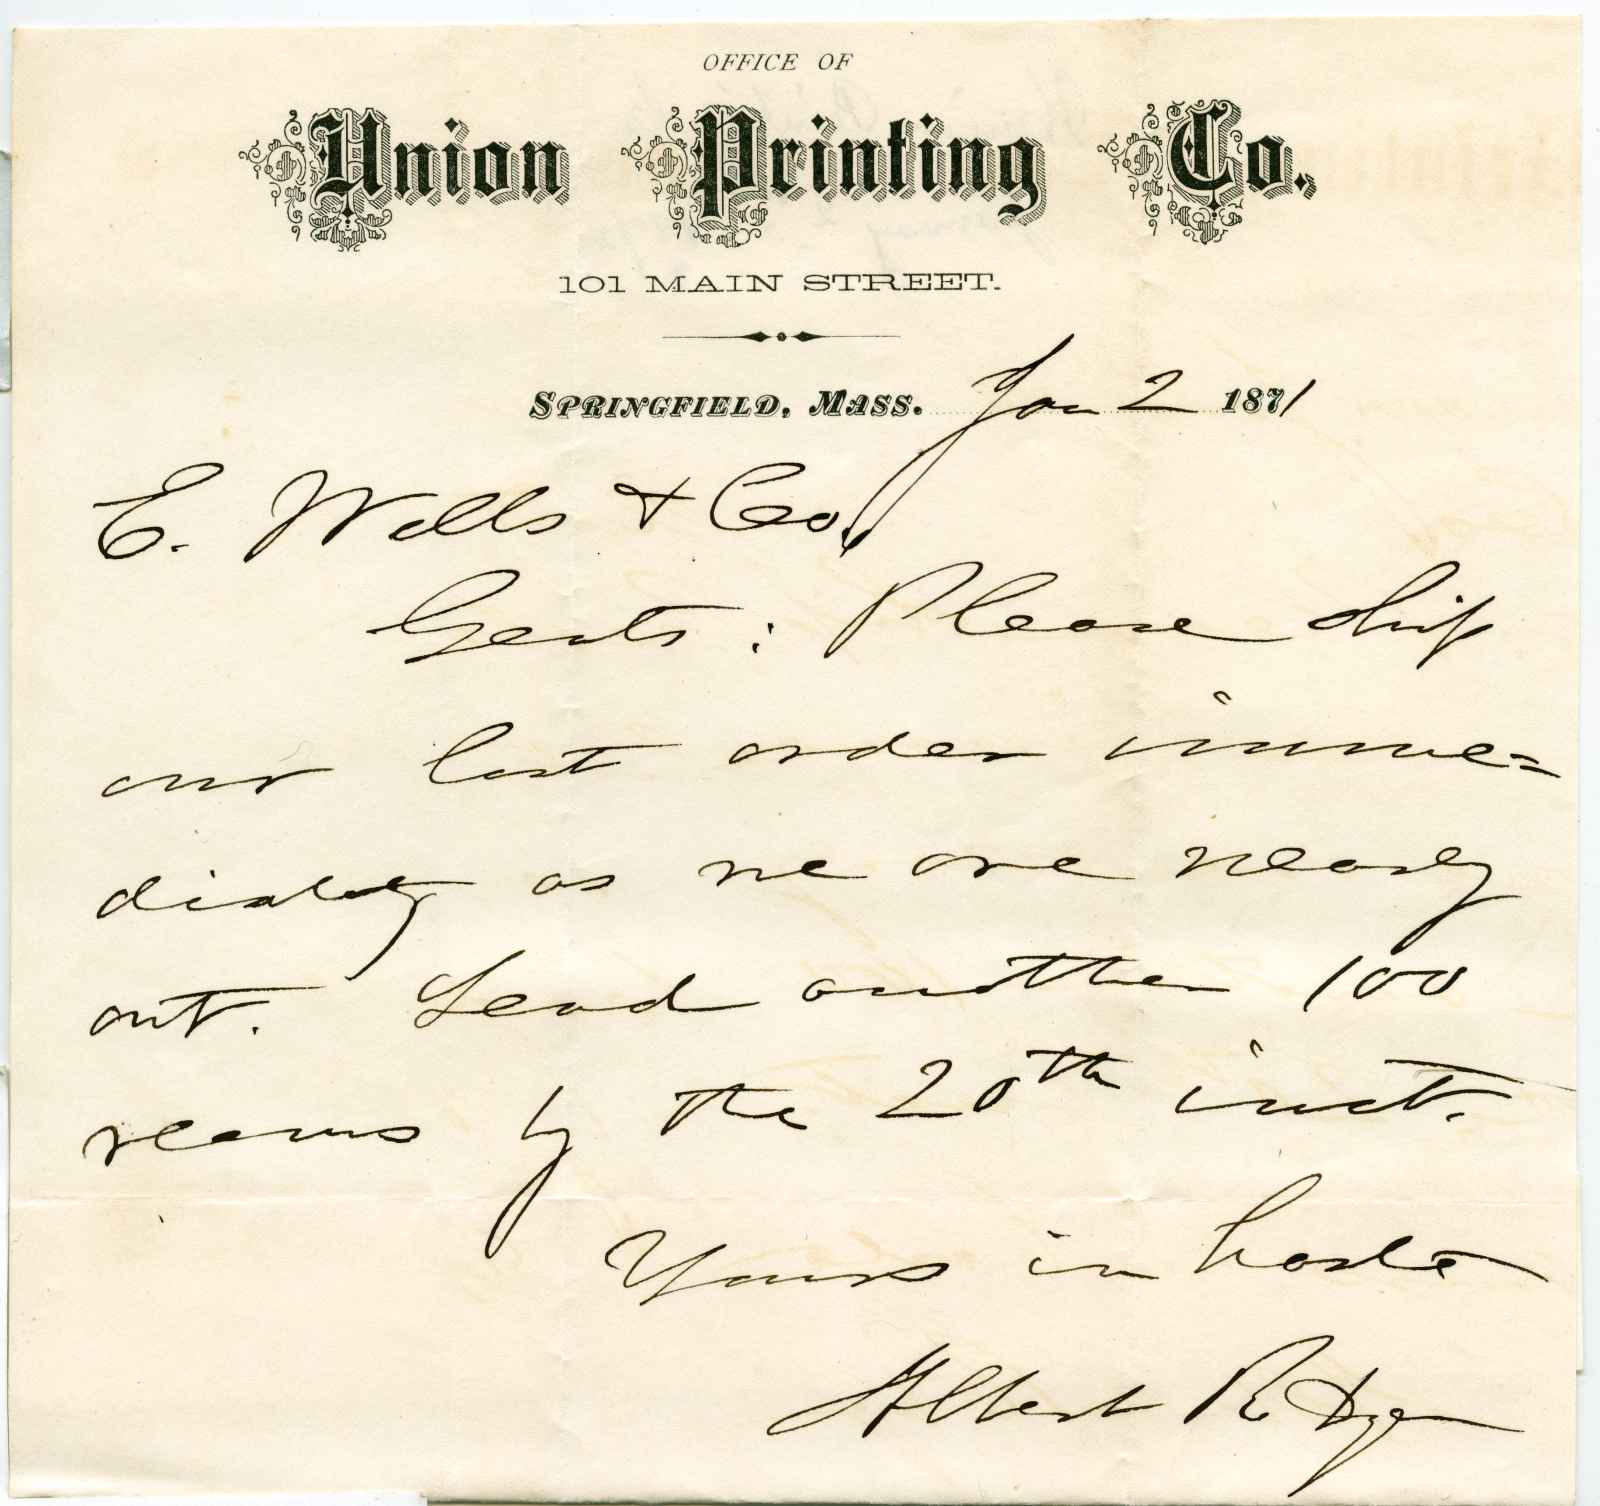 OFFICE OF
Union Printing Co.
101 MAIN STREET.
SPRINGFIELD, MASS. Jan 2 1871
E. Wells & Co.
Gents: Please ship
our last order imme=
diately as we are nearly
out. Send another 100
reams by the 20th inst.
Yours in haste
Albert R